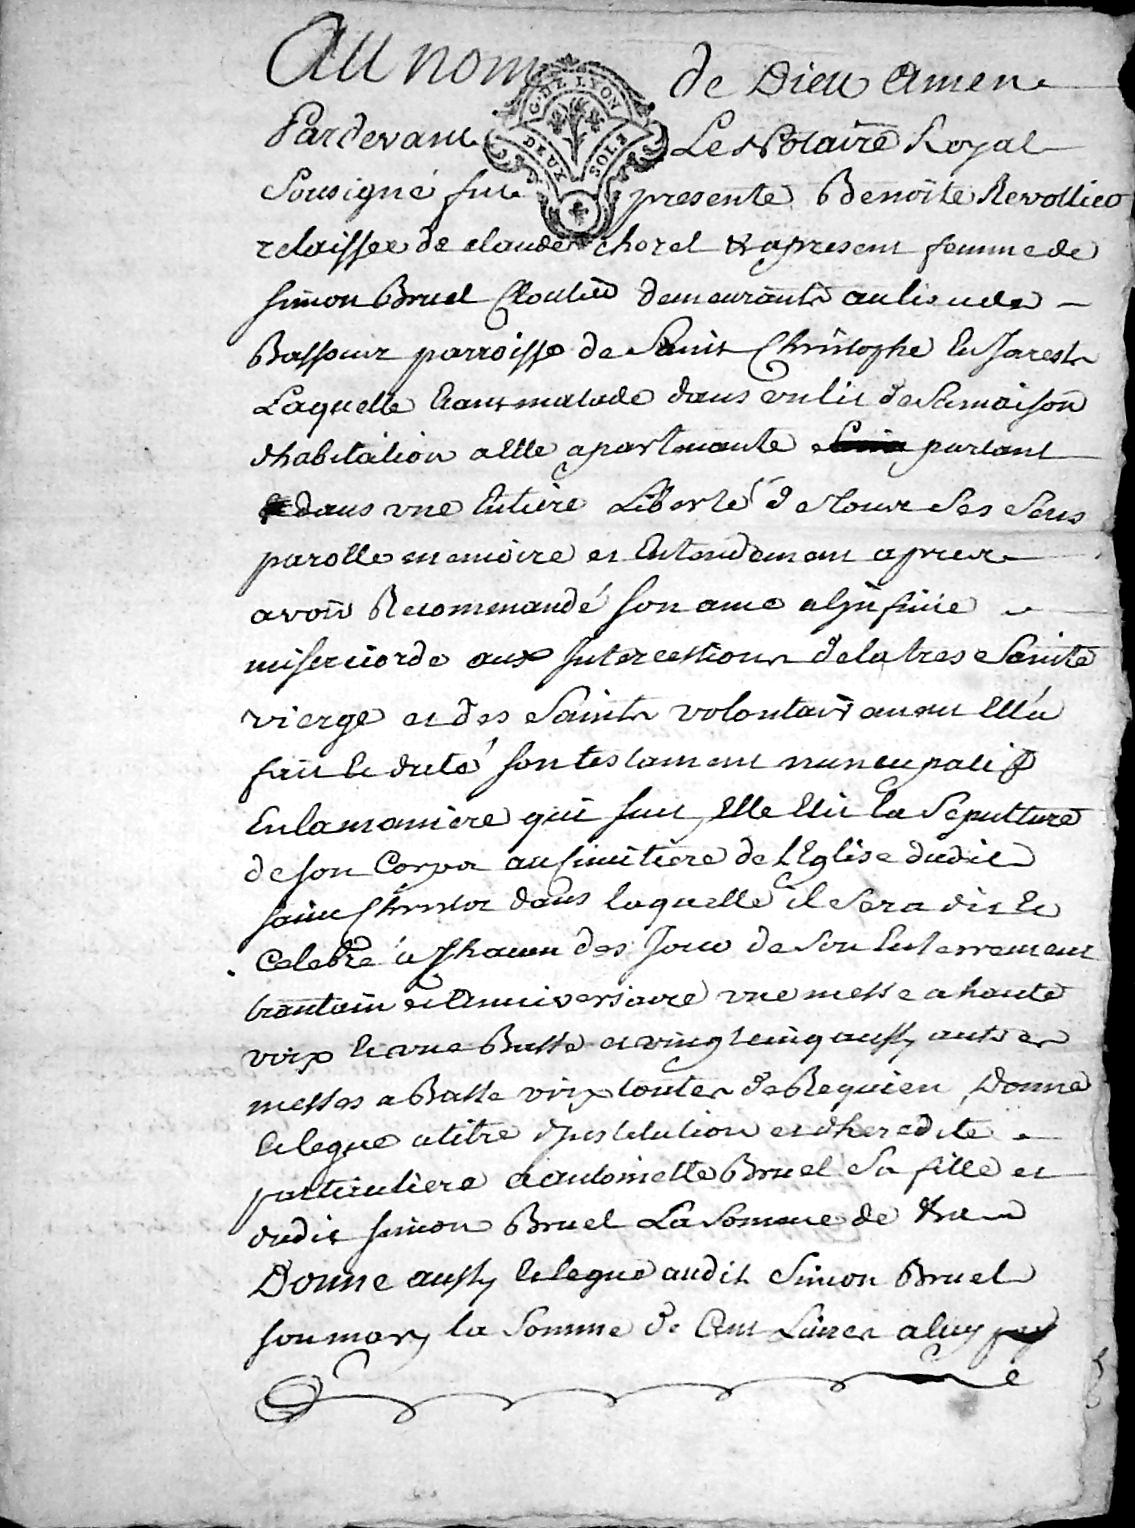 Au nom de Dieu Amen
G. DE LYON
DEUX SOLS
Pardevant Le Notaire Royal
Sousigné fut presente Benoite Revollier
relaissee de claude chorel & apresent femme de
simon Bruel Cloutier demeurants au lieu de
Bassour parroisse de Saint Christophe En Jarest
Laquelle Etant malade dans un lit de Sa maison
d'habitation a Elle apartenante partant
dans une Entiere Liberté de tous Ses Sens
parolle memoire et Entendement apres
avoir Recommandé son ame a Linfinie
misericorde aux Intercessions de la tres Sainte
vierge et des Saints volontairement Ell'a
fait Et dicté son testament nuncupatif
En la maniere qui suit, Elle Elit la Sepulture
de son Corps au Simitiere de L'Eglise dudit
saint Christot dans laquelle il Sera dit Et
Celebré a Chacun des Jour de Son Enterrement
trantain et Anniversaire une messe a haute
voix Et une Basse et vingt cinq aussy autres
messes a Basse voix toutes de Requien, Donne
Et legue a titre d'Institution et d'heredite
particuliere a antoinette Bruel Sa fille et
dudit simon Bruel La Somme de
Donne aussy Et legue audit Simon Bruel
son mary la Somme de Cent Livres a luy